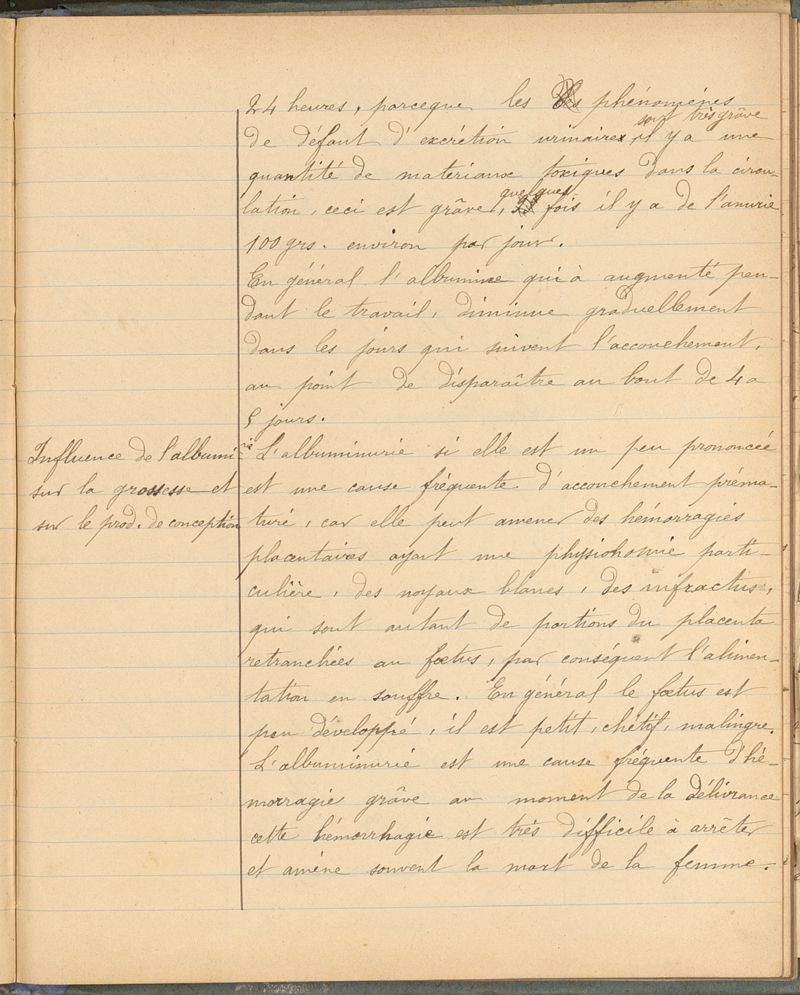 24 heures, parceque les phénomènes
sont très grâve
de défaut d'excrétion urinaires, il y a une
quantité de matériaux toxiques dans la circu-
quelques
lation, ceci est grâve, fois il y a de l'anurie
100 grs. environ par jour.
En général l'albumine qui à augmenté pen-
dant le travail, diminue graduellement
dans les jours qui suivent l'accouchement,
au point de disparaître au bout de 4 a
5 jours.
Influence de l'albumi-rie
sur la grossesse et
sur le prod. de conception
L'albuminurie si elle est un peu prononcée
est une cause fréquente d'accouchement préma-
turé, car elle peut amener des hémorragies
placentaires ayant une physiohomie parti-
culière, des noyaux blancs, des infractus,
qui sont autant de portions du placenta
retranchées au fœtus, par conséquent l'alimen-
tation en souffre. En général le fœtus est
peu développé, il est petit, chétif, malingre.
L'albuminurie est une cause fréquente d'hé-
morragie grâve au moment de la délivrance
cette hémorrhagie est trés difficile à arrêter
et amène souvent la mort de la femme.